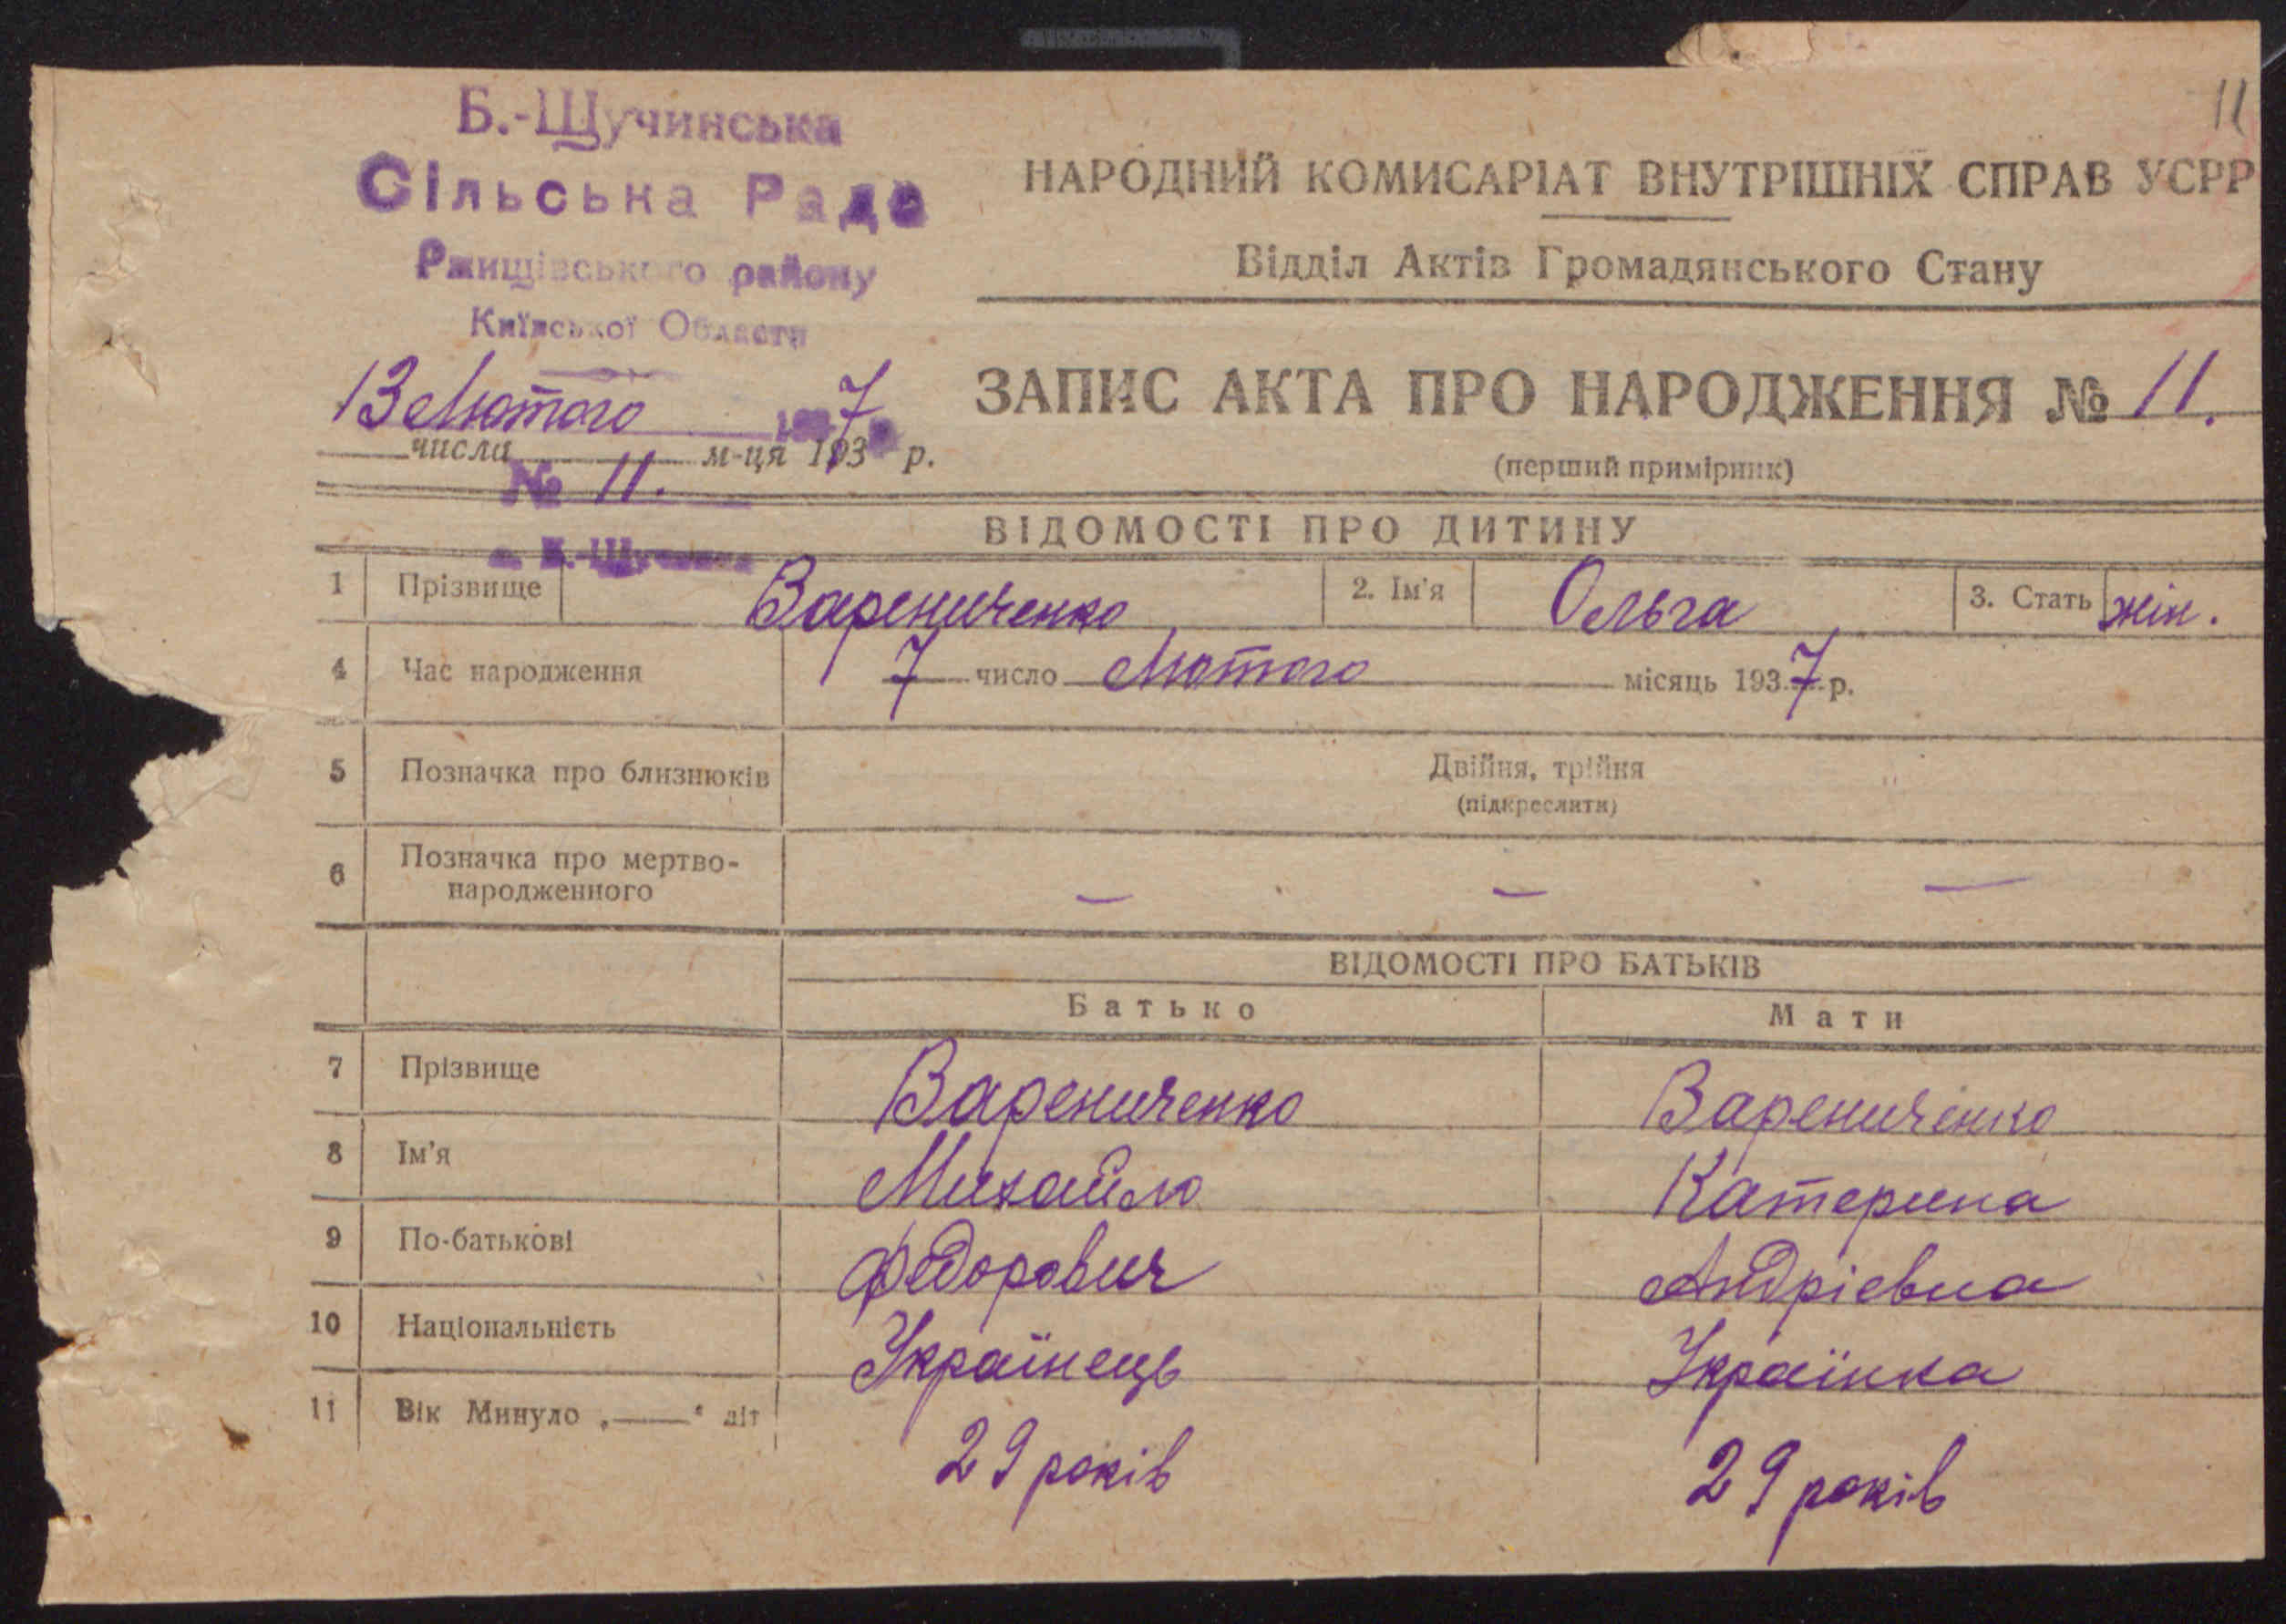 11
Б.-Щучинська
Сільська Рада
Ржищівського району
Київської Области
13 Лютого 7
числа м-ця 193 р.
№ 11.
НАРОДНИЙ КОМИСАРІАТ ВНУТРІШНІХ СПРАВ УСРР
Відділ Актів Громадянського Стану
ЗАПИС АКТА ПРО НАРОДЖЕННЯ № 11.
(перший примірник)
ВІДОМОСТІ ПРО ДИТИНУ
1 Прізвище Варениченко 2. Ім'я Ольга 3. Стать жін.
4 Час народження 7 число Лютого місяць 1937 р.
5 Позначка про близнюків Двійня, трійня
(підкреслити)
6 Позначка про мертво-
народженного — — —
ВІДОМОСТІ ПРО БАТЬКІВ
Батько Мати
7 Прізвище Варениченко Варениченко
8 Ім'я Михайло Катерина
9 По-батькові Федорович Андріевна
10 Національність Українець Українка
11 Вік Минуло „——“ літ 29 років 29 років